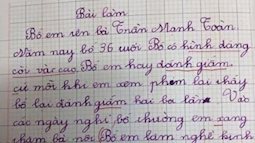 Bài làm
Bố em tên là Trần Mạnh Toàn.
Năm nay bố 36 tuổi. Bố có hình dáng
cao. Bố em hay đánh giấm,
cứ mỗi khi em xem phim lâu thấy
bố lại đánh giấm hai ba lần. Vào
các ngày nghỉ bố thường em sang
thăm bà nội. Bố em làm nghề kinh